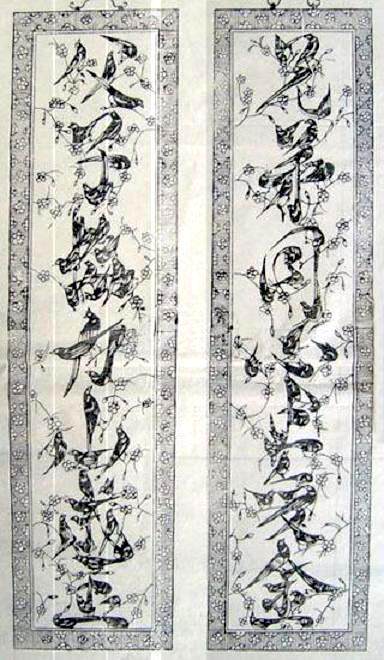 兄弟同心土變金
父子協力山成玉